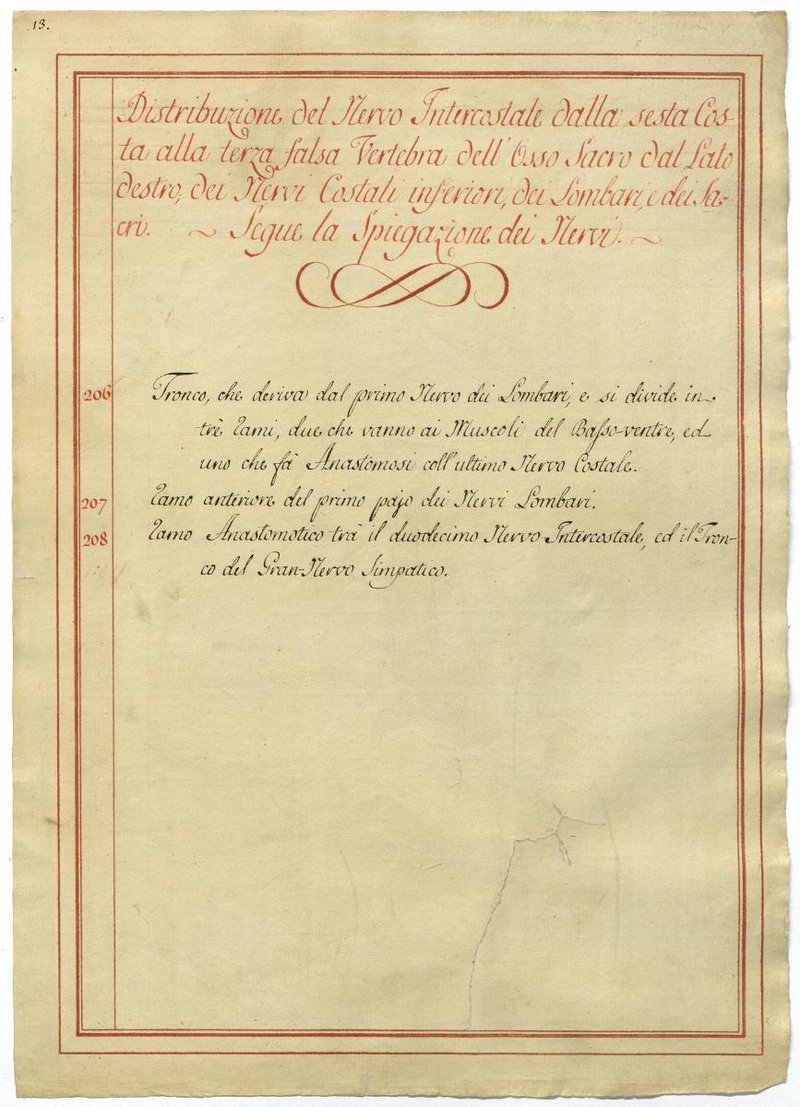 13.
Distribuzione del Nervo Intercostale dalla sesta Cos-
ta alla terza falsa Vertebra dell'Osso Sacro dal Lato
destro, dei Nervi Costali inferiori, dei Lombari, e dei Sa-
cri. ~ Segue la Spiegazione dei Nervi. ~
206 Tronco, che deriva dal primo Nervo dei Lombari, e si divide in
trè Rami, due che vanno ai Muscoli del Basso-ventre, ed
uno che fà Anastomosi coll'ultimo Nervo Costale.
207 Ramo anteriore del primo pajo dei Nervi Lombari.
208 Ramo Anastomotico trà il duodecimo Nervo Intercostale, ed il Tron-
co del Gran-Nervo Simpatico.